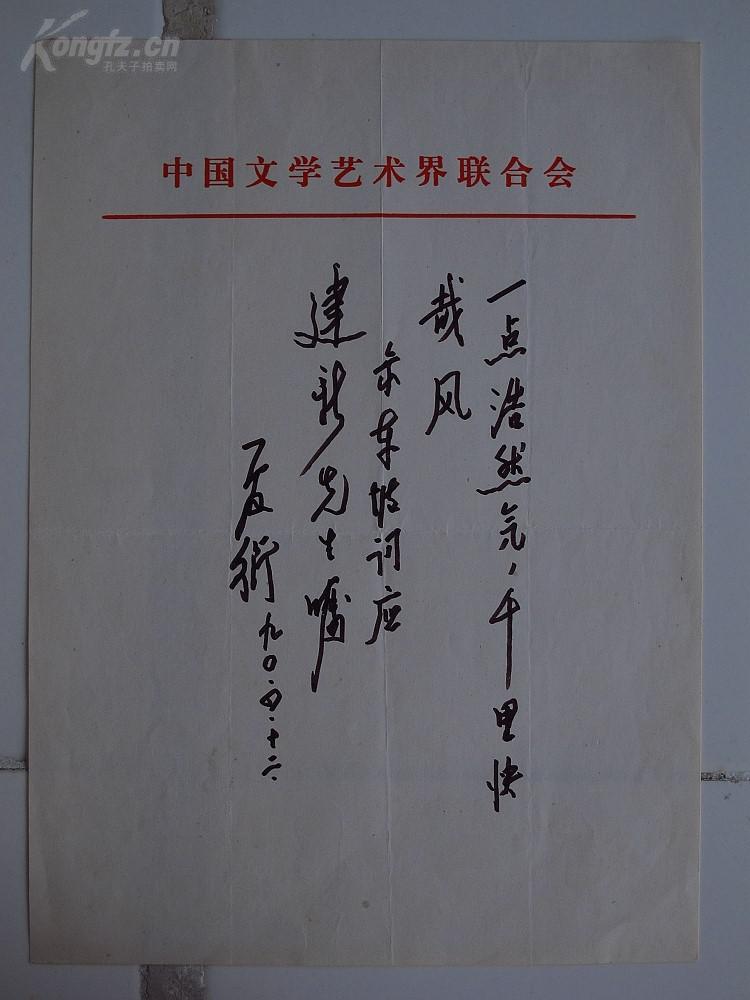 Kongfz.cn
孔夫子拍卖网
中国文学艺术界联合会
一点浩然气，千里快
哉风
录东坡词应
建新先生嘱
夏衍 九〇·四·十六